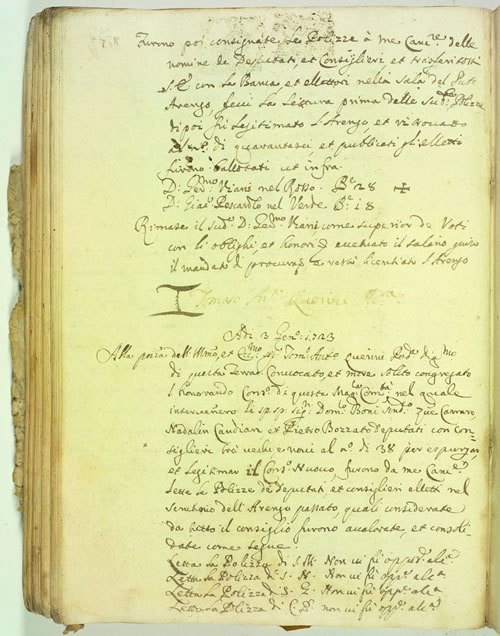 Furono poi consignate le Polizze à me Canc.re delle
nomine de Deputati, et Consiglieri et trasferitosi
S. E. con la Banca, et ellettori nella Sala del
Arengo, feci la lettura prima delle Sud.te Polizze
di poi fù legitimato l'Arengo et ritrovato
al n.o di quarantasei, et publicati gli elletti
furono ballotati ut infra
D: Ger.mo Viani nel Rosso: B.e 28 +
D: Giac.o nel Verde B.e 18
Rimase il Sud.o D: Ger.mo Viani come superior de Voti
con li oblighi, et honori et il salario
il mandato di procura e restò licentiato l'Arengo
Tomaso Ant.o Querini
Adi 3 Gen.o 1723
Alla pnza dell' Illmo, et Ecc.mo Sr. Tom.o Ant.o Querini Pod.a
di questa Terra Convocato, et more solito congregato
l'honorando Cons.o di questa Mag.ca Com.tà nel quale
intervenero li sp. sp. Sig.ri Dom.o Boni Sind.o Zue Carraro
Nadalin Candian et Pietro Bozzato Deputati con Con-
siglieri trà vechi e novi al n.o di 38 per espurgar
et legitimar il Cons.o Nuovo, furono da me Canc.re
lette le Polizze de Deputati et consiglieri elletti nel
dell' Arengo passato, quali considerate
da tutto il consiglio furono avalorate, et consoli-
date come segue
Letta la Polizza di S. M. Non vi fù oppo.e alc.a
Letta la Polizza di S. N. Non vi fù opp.e alc.a
Lettura Polizza di S. Z. Non vi fù opp.e alc.a
Lettura Polizza di non vi fù opp.e alc.a